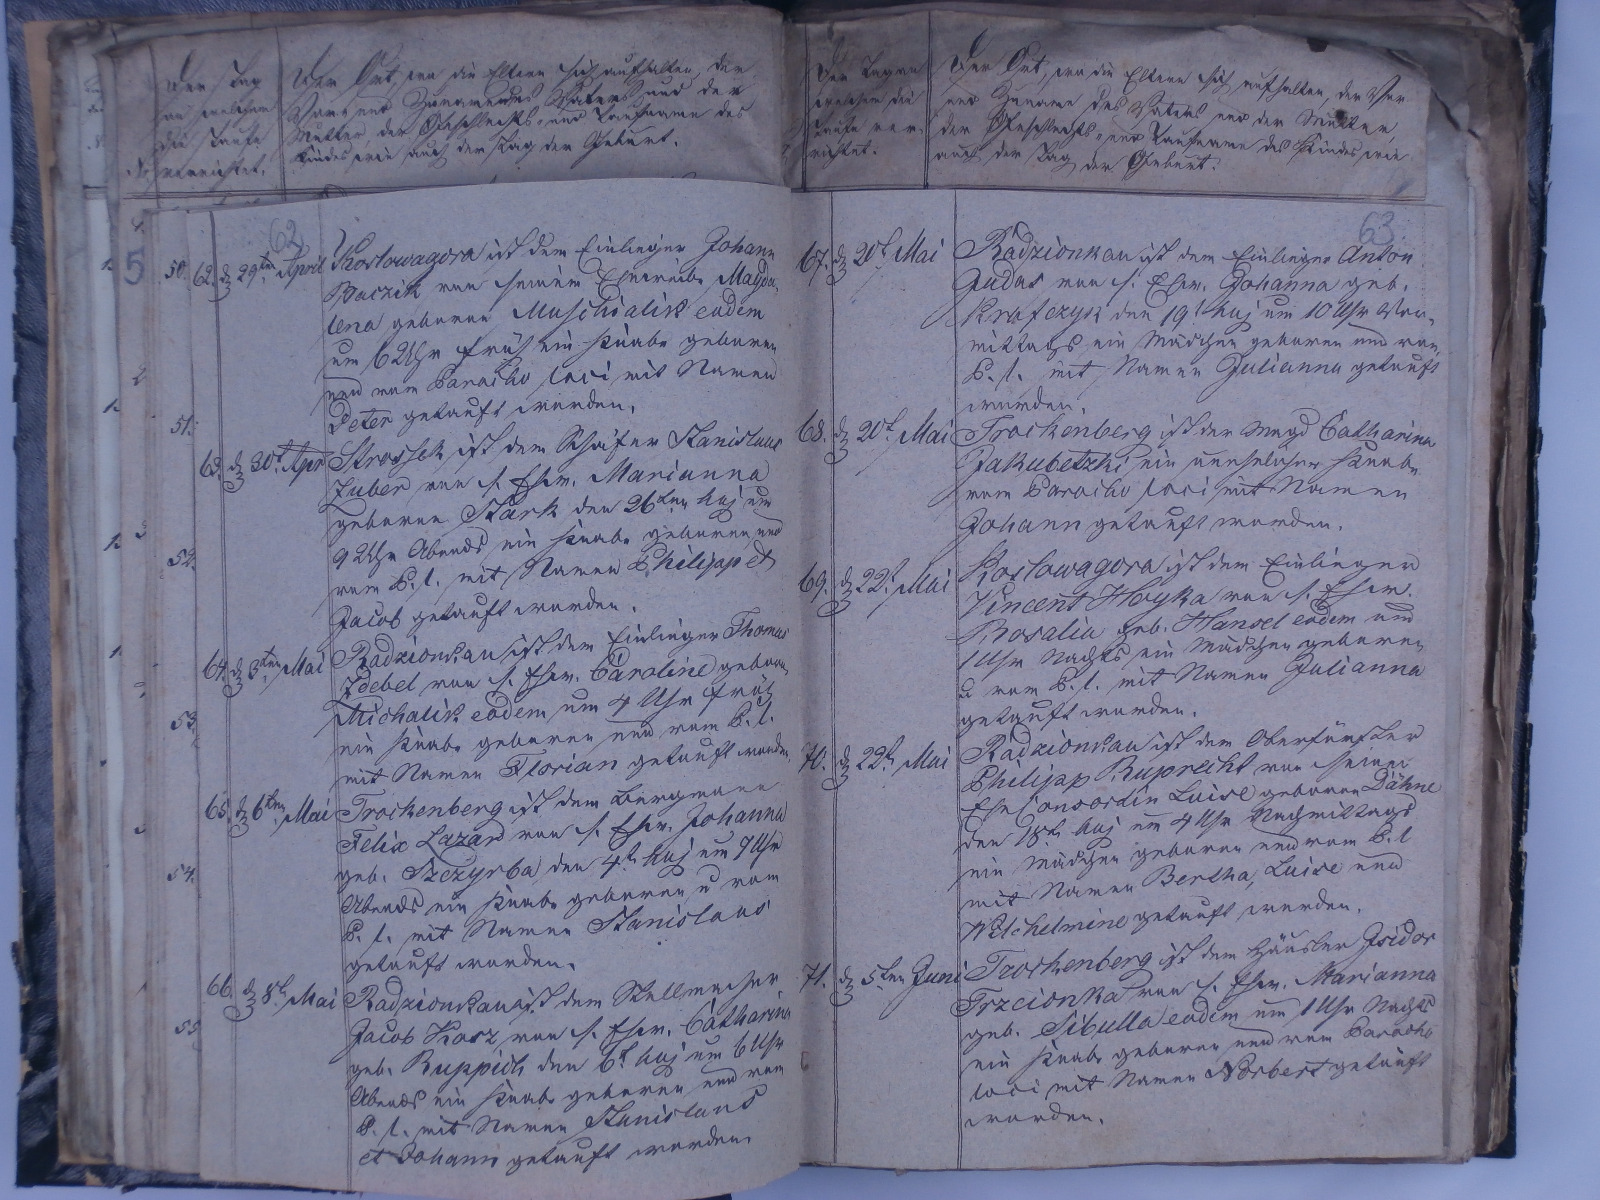 Der Tag
an welchem
die Taufe
verrichtet.
Der Ort, wo die Eltern sich aufhalten, der
Vor- und Zuname des Vaters und der
Mutter, der Geschlechts- und Taufname des
Kindes, wie auch der Tag der Geburt.
62
5
50. 62. d 29ten April Koslowagora ist dem Einlieger Johann
Baczik von seinem Eheweibe Magda-
lena geboren Muschialik eodem
um 6 Uhr früh ein Knabe geboren
und vom Parocho loci mit Namen
Peter getauft worden.
51.
63. d 30t Apr Stroschek ist dem Schäfer Stanislaus
Zuber von s. Ehew. Marianna
geborene Stark den 26ten huj um
9 Uhr Abends ein Knabe geboren und
vom P. l. mit Namen Philipp et
Jacob getauft worden.
52.
64. d 3ten Mai Radzionkau ist dem Einlieger Thomas
Zdebel von s. Ehew. Caroline geboren
Michalik eodem um 4 Uhr früh
ein Knabe geboren und vom P. l.
mit Namen Florian getauft worden.
53.
65. d 6ten Mai Trockenberg ist dem Bergmann
Felix Lazar von s. Ehew. Johanna
geb. Szczyrba den 4t huj um 9 Uhr
Abends ein Knabe geboren u vom
P. l. mit Namen Stanislaus
getauft worden.
54.
66. d 8t Mai Radzionkau ist dem Stellmacher
Jacob Kosz von s. Ehew. Catharina
geb. Ruppich den 6t huj um 6 Uhr
Abends ein Knabe geboren und vom
P. l. mit Namen Stanislaus
et Johann getauft worden.
55.
Der Tag an
welchem die
Taufe ver-
richtet.
Der Ort, wo die Eltern sich aufhalten, der Vor-
und Zuname des Vaters und der Mutter,
der Geschlechts- und Taufname des Kindes wie
auch der Tag der Geburt.
63.
67. d 20t Mai Radzionkau ist dem Einlieger Anton
Judas von s. Ehew. Johanna geb.
Krafczyk den 19t huj um 10 Uhr Vor-
mittags ein Mädchen geboren und vom
P. l. mit Namen Julianna getauft
worden.
68. d 20t Mai Trockenberg ist der Magd Catharina
Jakubetzki ein unehelicher Knabe
vom Parocho loci mit Namen
Johann getauft worden.
69. d 22t Mai Koslowagora ist dem Einlieger
Vincent Hoyka von s. Ehew.
Rosalia geb. Hansel eodem um
1 Uhr Nachts ein Mädchen geboren
u vom P. l. mit Namen Julianna
getauft worden.
70. d 22t Mai Radzionkau ist dem Oberförster
Philipp Ruprecht von seiner
Ehe Consordin Luise geboren Dähne
den 18t huj um 4 Uhr Nachmittags
ein Mädchen geboren und vom P. l
mit Namen Bertha, Luise und
Wilchelmine getauft worden.
71. d 5ten Juni Trockenberg ist dem Häusler Isidor
Trzcionka von s. Ehew. Marianna
geb. Sibulla eodem um 1 Uhr Nachts
ein Knabe geboren und vom Parocho
loci mit Namen Norbert getauft
worden.